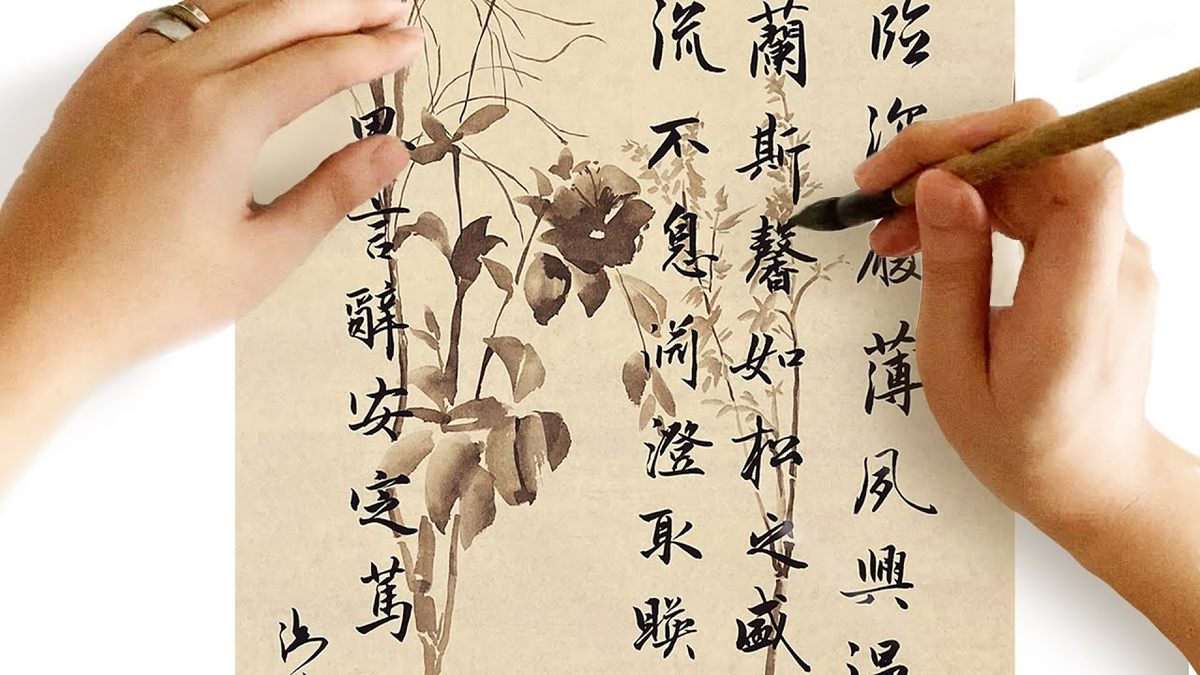 臨深履薄夙興温
蘭斯馨如松之盛
流不息淵澄取暎
思言辭安定篤